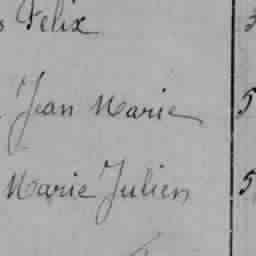 Felix
Jean Marie 5
Marie Julien 5